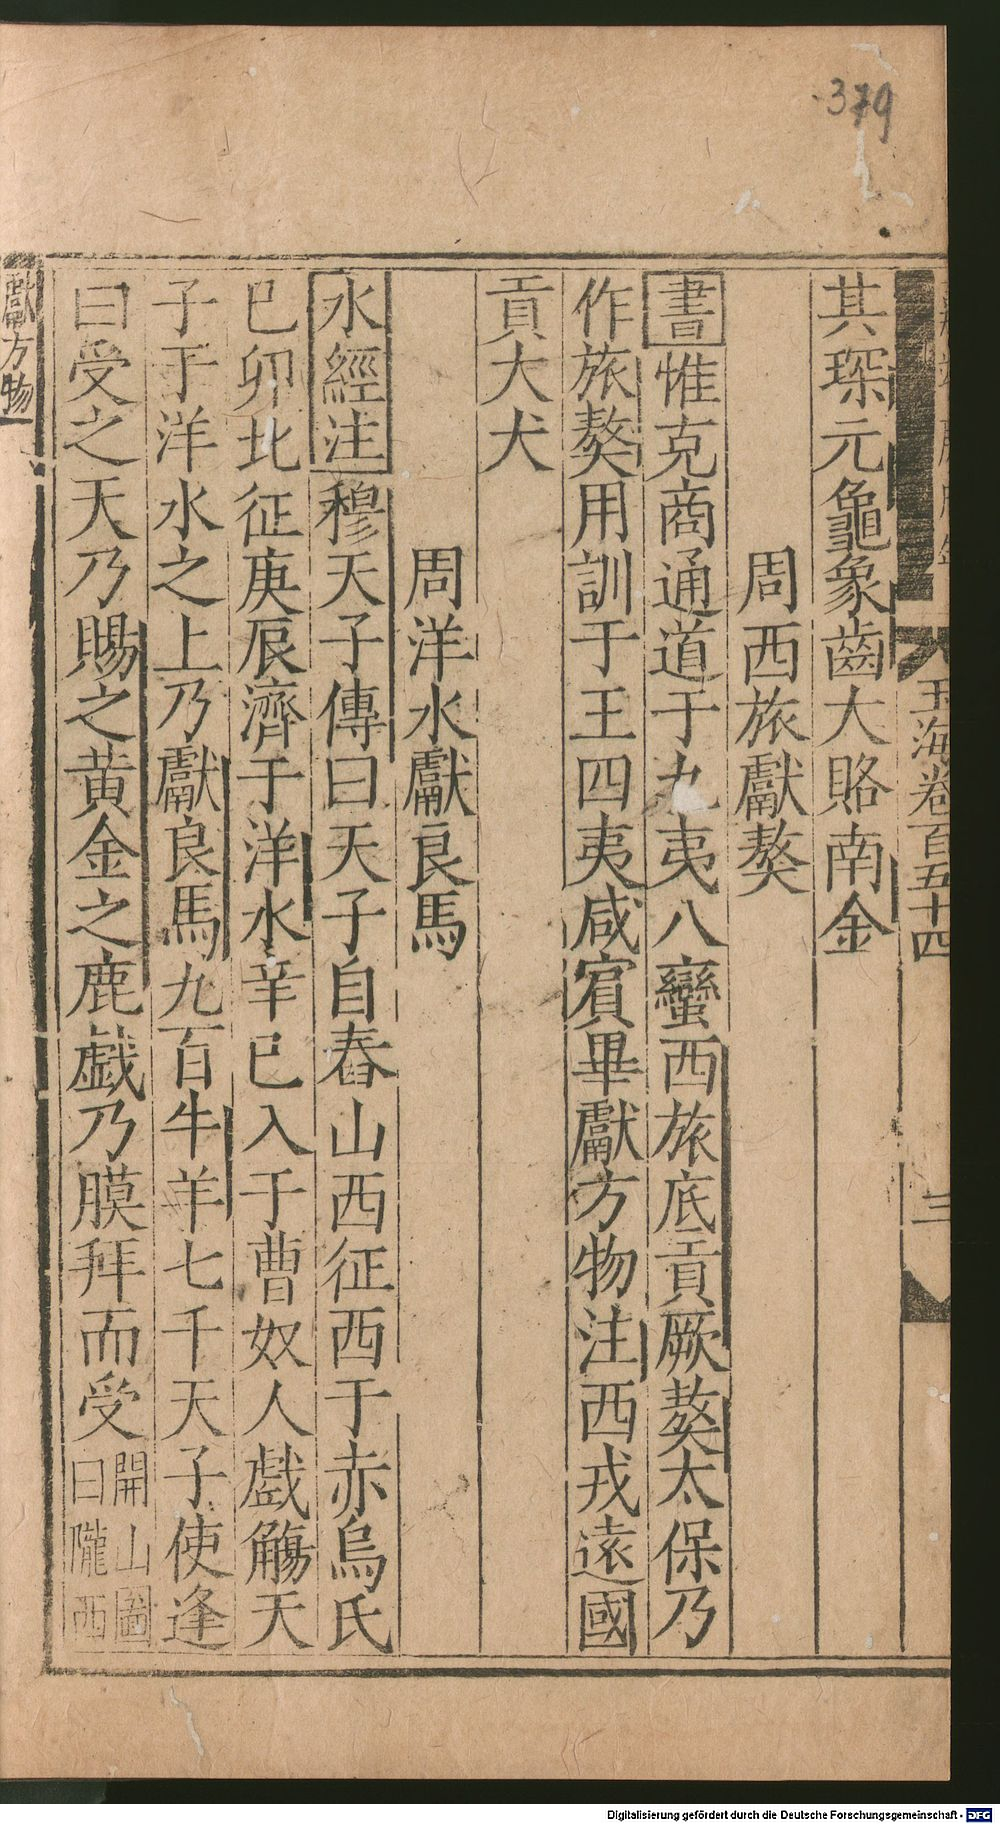 379
玉海卷百五十四
三
其琛元龜象齒大賂南金
周西旅獻獒
書惟克商通道于九夷八蠻西旅底貢厥獒太保乃
作旅獒用訓于王四夷咸賓畢獻方物注西戎遠國
貢大犬
周洋水獻良馬
水經注穆天子傳曰天子自舂山西征西于赤烏氏
已卯北征庚辰濟于洋水辛巳入于曹奴人戲觴天
子于洋水之上乃獻良馬九百牛羊七千天子使逢
曰受之天乃賜之黄金之鹿戯乃膜拜而受開山圖
曰隴西
獻方物
Digitalisierung gefördert durch die Deutsche Forschungsgemeinschaft - DFG